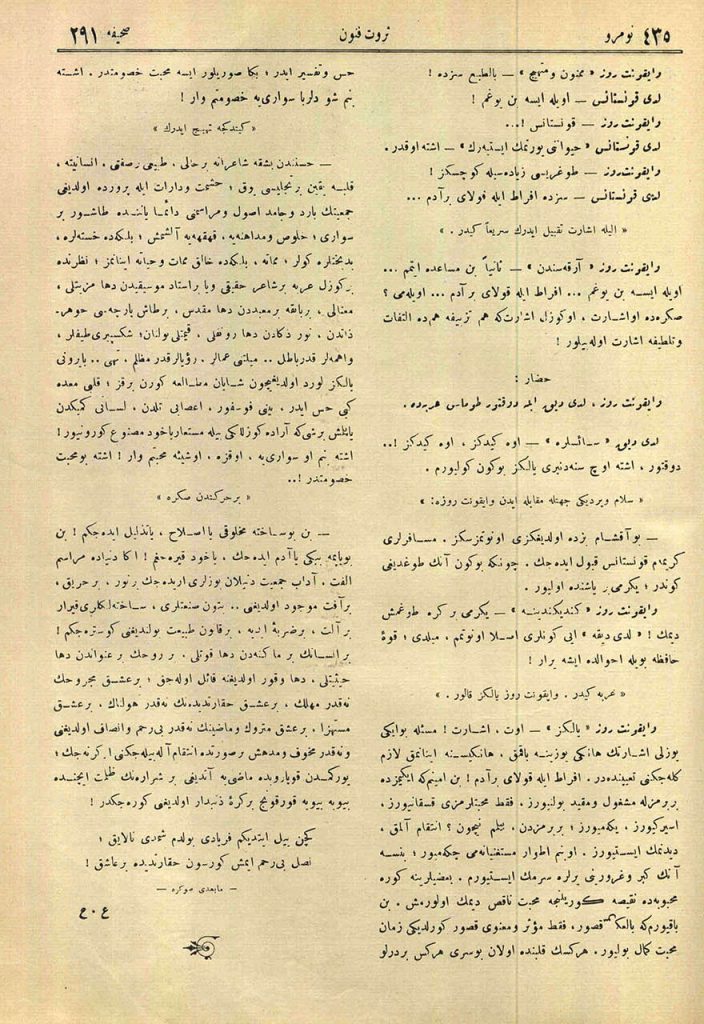 نومرو ٤٣٥
ثروت فنون
صحيفه ٢٩١
وايقونت روز « ممنون ومتهيج » — بالطبع سزده !
لدی قونستانس — اويله ايسه بن يوغم !
وايقونت روز — قونستانس !...
لدی قونستانس « حيوانی يورتمك ايستيه‌رك » — اشته اوقدر .
وايقونت روز — طوغريسی زياده‌سيله كوچسكز !
لدی قونستانس — سزده افراط ايله قولای برآدم ...
« اليله اشارت تقبيل ايدرك سريعاً كيدر . »
وايقونت روز « آرقه‌سندن » — ثانياً بن مساعده ايتم ...
اويله ايسه بن يوغم ... افراط ايله قولای برآدم ... اويله‌می ؟
صكره‌ده اواشارت ، اوكوزل اشارت‌كه هم تزييفه هم‌ده التفات
وتلطيفه اشارت اوله‌بيلور !
حضار :
وايقونت روز ، لدی ديق ايله دوقتور طوماس هربه‌ده .
لدی ديق « سائسلره » — اوه كيدكز ، اوه كيدكز !..
دوقتور ، اشته اوچ سنه‌دنبری يالكز بوكون كوليورم .
« سلام ويرديكی جهتله مقابله ايدن وايقونت روزه : »
— بوآقشام بزده اولديغكزی اونوتمزسكز . مسافرلری
كريمه‌م قونستانس قبول ايده‌جك . چونكه بوكون آنك طوغديغی
كوندر ؛ يكرمی بر ياشنده اوليور .
وايقونت روز « كنديكندينه » — يكرمی بر كره طوغمش
ديمك ! « لدی ديقه » ايی كونلری اصلا اونوتمم ، ميلدی ؛ قوهٔ
حافظه بويله احوالده ايشه يرار !
« عربه كيدر . وايقونت روز يالكز قالور . »
وايقونت روز « يالكز » — اوت ، اشارت ! مسئله بوايكی
يوزلی اشارتك هانكی يوزينه باقمق ، هانكيسنه اينانمق لازم
كله‌جكنی تعيينده‌در . افراط ايله قولای برآدم ! بن امينم‌كه ايكيمزده
بربرمزله مشغول ومقيد بولنيورز . فقط محبتلرمزی قسقانيورز ،
اسيركيورز ، يكه‌ميورز ؛ بربرمزدن ، بيلم نيچون ؟ انتقام آلمق ،
ديدنمك ايستيورز . اوبنم اطوار مستغنيانه‌می چكه‌ميور ؛ بنسه
آنك كبر وغرورينی يرلره سرمك ايستيورم . بعضيلرينه كوره
محبوبه‌ده نقيصه كورلنجه محبت ناقص ديمك اولورمش . بن
باقيورم‌كه بالعكس قصور ، فقط مؤثر ومعنوی قصور كورلديكی زمان
محبت كمال بوليور . هركسك قلبنده اولان بوسری هركس بردرلو
حس وتفسير ايدر ؛ بكا صوريلور ايسه محبت خصومتدر . اشته
بنم شو دلربا سواری‌يه خصومتم وار !
« كيتدكجه تهيج ايدرك »
— حسندن بشقه شاعرانه برحالی ، طبيعی برصفتی ، انسانيته ،
قلبه يقين برتجليسی يوق ؛ حشمت ودارات ايله پرورده اولديغی
جمعيتك بارد وجامد اصول ومراسمنی دائما ياننده طاشور بر
سواری ؛ خلوص ومداهنه‌يه ، قهقهه‌يه آلشمش ؛ بلكه‌ده خسته‌لره ،
بدبختلره كولر ؛ ممانه ، بلكه‌ده خالق ممات وحياته اينانمز ؛ نظرنده
بركوزل عربه برشاعر حقيقی ويا براستاد موسيقيدن دها مزيتلی ،
معنالی ، برباقه برمعبددن دها مقدس ، برطاش پارچه‌سی جوهر
ذاتدن ، نور ذكادن دها رونقلی ، قيمتلی بولنان ؛ شكسپيری طيفلر ،
واهمه‌لر قدرباطل .. ميلتنی عمالر . رؤيالرقدر مظلم ، تهی .. بايرونی
يالكز لورد اولديغيچون شايان مطالعه كورن برقز ؛ قلبی معده
كبی حس ايدر ، بينی فوسفور ، اعصابی تلدن ، لسانی كميكدن
ياپلش برشی‌كه آراده كوزللكی بيله مستعار ياخود مصنوع كورونيور !
اشته بنم او سواری‌يه ، اوقزه ، اوشيئه محبتم وار ! اشته بومحبت
خصومتدر !..
« برحركتدن صكره »
— بن بوساخته مخلوقی يا اصلاح ، ياتذليل ايده‌جكم ! بن
بويايمه بيكی ياآدم ايده‌جك ، ياخود قيره‌جغم ! اكا دنياده مراسم
الفت . آداب جمعيت دنيلان بوزلری اريده‌جك برنور ، برحريق ،
برآفت موجود اولديغی .. بتون صنعتلری ، ساخته‌لكلری قيرار
برآلت ، برضربهٔ ابديه ، برقانون طبيعت بولنديغنی كوستره‌جكم !
برانسانك بر ماكنه‌دن دها قوتلی . بر روحك برعنواندن دها
حيثيتلی ، دها وقور اولديغنه قائل اوله‌جق ؛ برعشق مجروحك
نه‌قدر مهلك ، برعشق حقارتديده‌نك نه‌قدر هولناك ، برعشق
مستهزا ، برعشق متروك وماضينك نه‌قدر بی‌رحم وانصاف اولديغنی
ونه‌قدر مخوف ومدهش برصورتده انتقام آله‌بيله‌جكنی اكرنه‌جك ؛
يوركمدن قوپاروبده ماضی‌يه آتديغی بر شراره‌نك ظلمات ايچنده
بيويه بيويه قورقونج بركرهٔ ذنبدار اولديغنی كوره‌جكدر !
كچن ييل ايتديكم فريادی بولدم شمدی نالايق ؛
نصل بی‌رحم ايمش كورسون حقارتديده برعاشق !
— مابعدی صوكره —
ع . ع